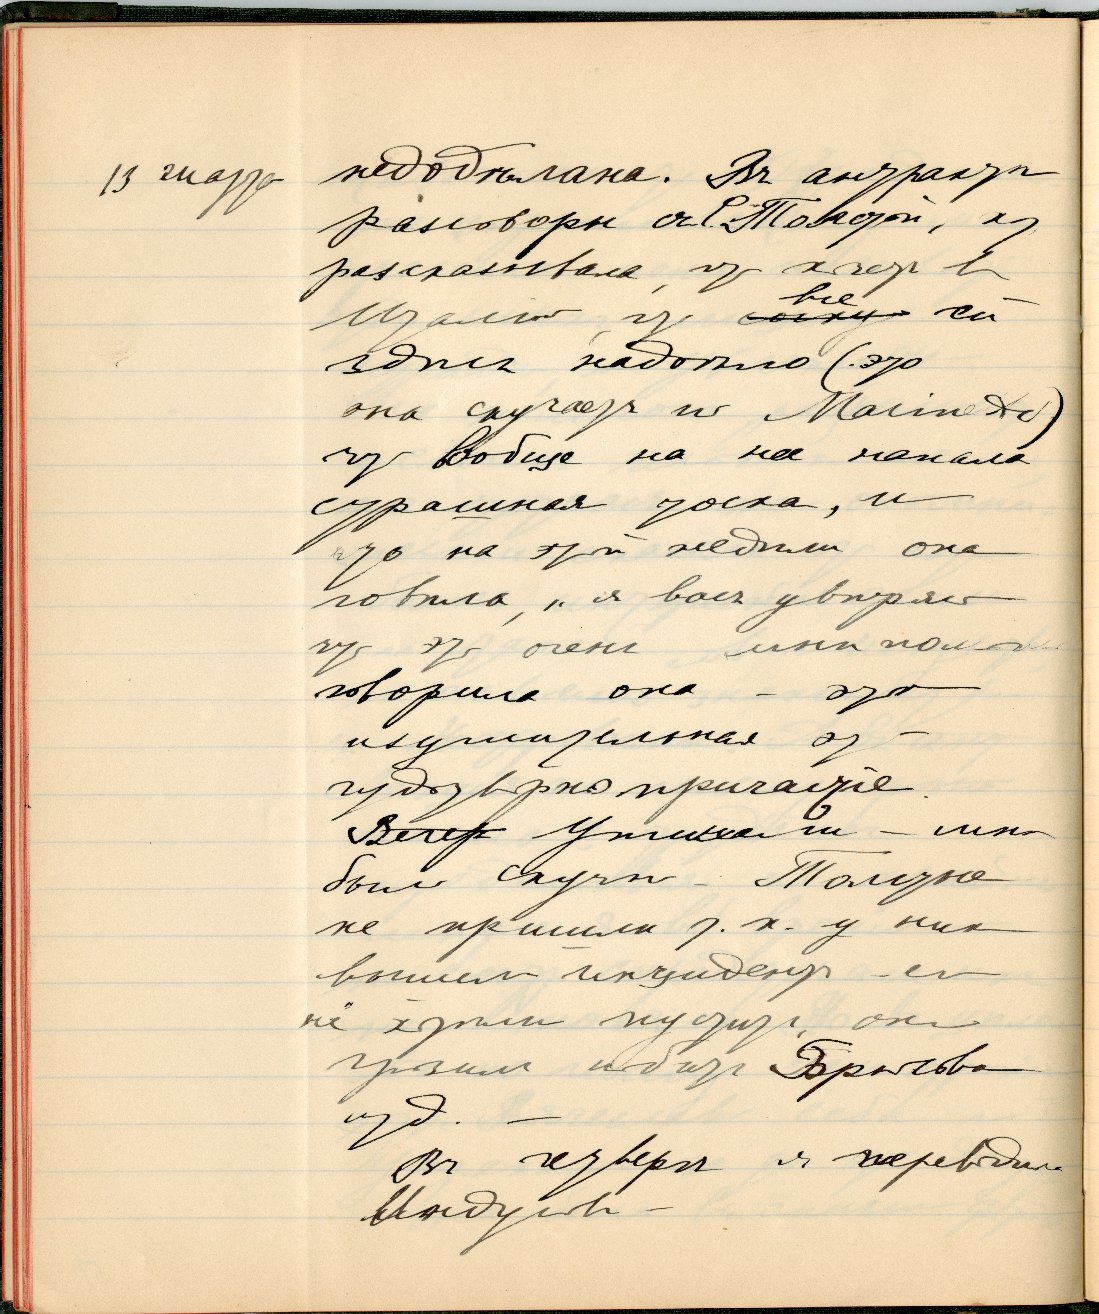 13 марта
недодѣлана. Въ антрактѣ
разговоры съ С. Толстой, кот
разсказывала, что хочет въ
Италію, что все ей
здѣсь надоѣло (это
она скучает по Marinetti)
что вообще на нее напала
страшная тоска, и
что на этой недѣли она
говѣла, „я васъ увѣряю
что это очень мнѣ помог
говорила она – это
изумительная эт
чудотворно причастіе.
Вечер У – мнѣ
было скучно – Толстые
не пришли т. к. у них
вышел инцидент – его
не хотѣли пустить, он
грозил избить Брюсова
и т д. –
Въ четвергъ я переводила
Индусов –